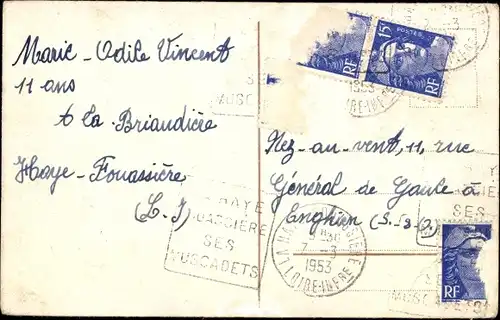 Marie-Odile Vincent
11 ans
A la Briandière
Haye-Fouassière
(L. I)
Nez-au-vent, 11, rue
Général de Gaulle à
Enghien (S.-&-O.)
15F POSTES
RF
RF
RF
1953
LOIRE-INFRE
LA HAYE FOUASSIERE
7 - 3
1953
LOIRE-INFRE
HAYE
FOUASSIÈRE
SES
MUSCADETS
SES
MUSCADETS